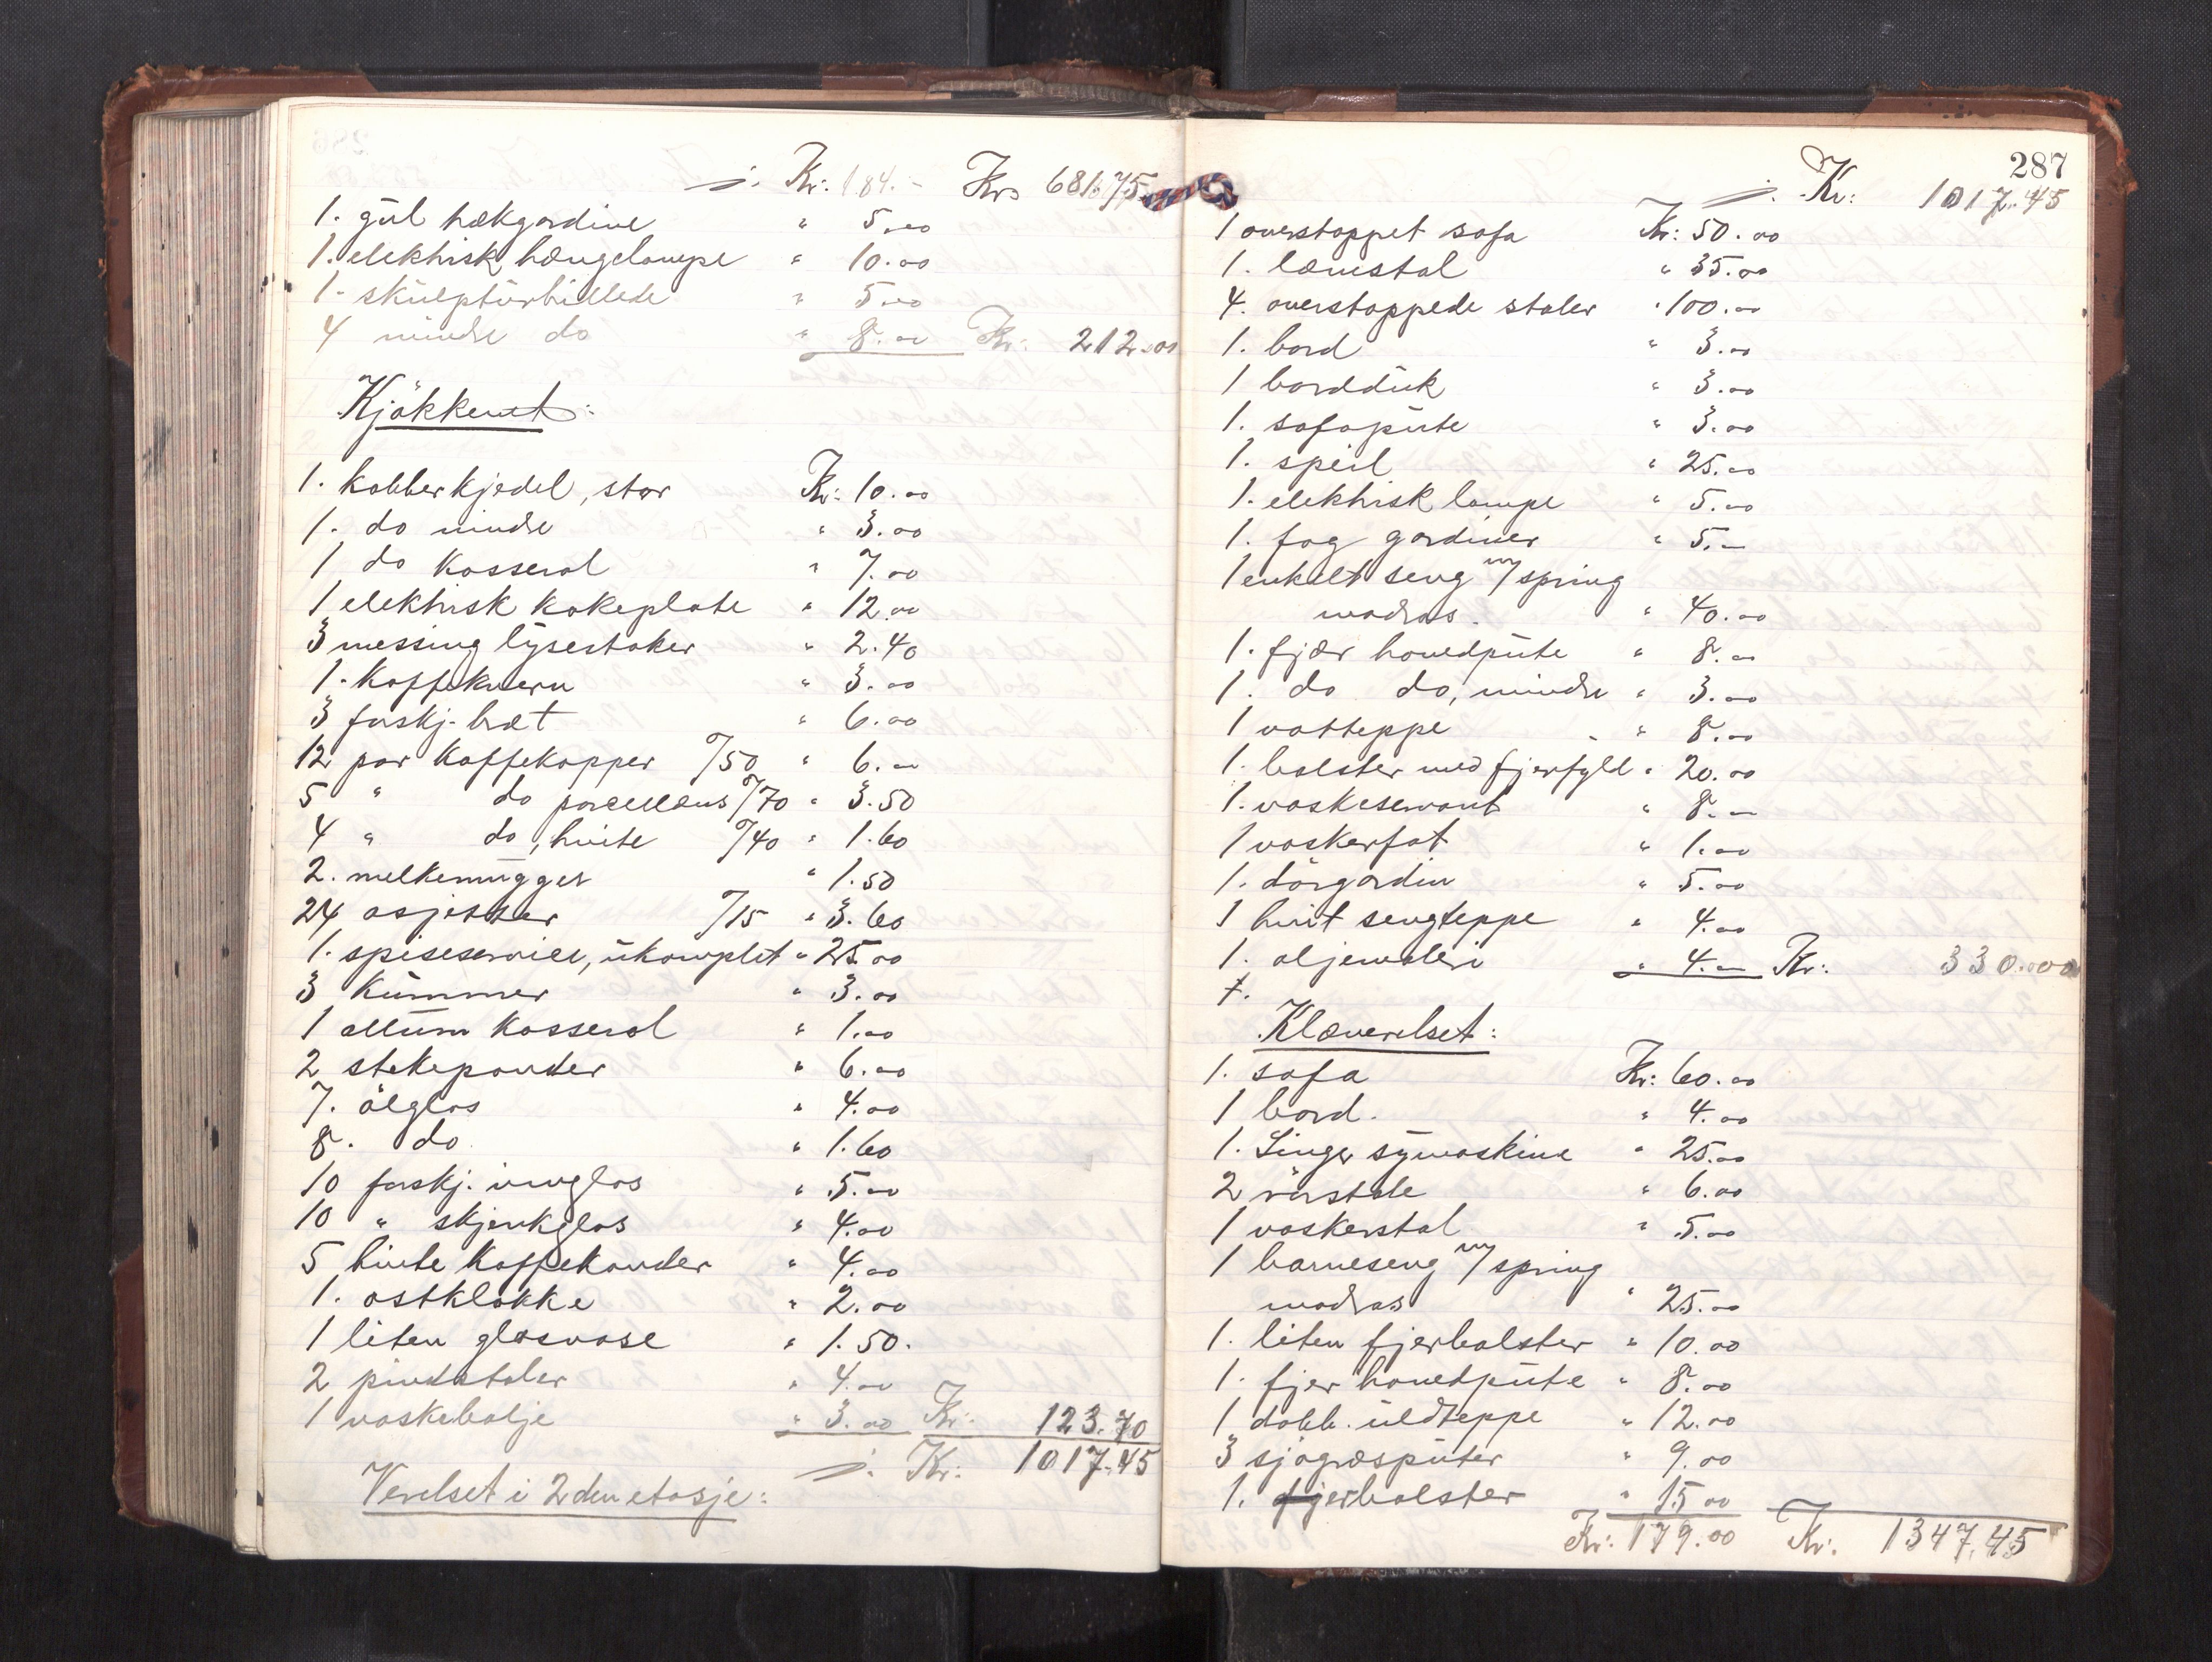 Kr: 184.- Krs 681.75
1. gul hækgardine " 5.00
1. elektrisk hængelampe " 10.00
1. skulpturbillede " 5.00
4 mindre do " 8.00 Kr: 212.00
Kjökkenet:
1. kobberkjedel, stor Kr: 10.00
1. do mindre " 3.00
1 do kasserol " 7.00
1 elektrisk kokeplate " 12.00
3 messing lysestaker " 2.40
1. kaffekvern " 3.00
3 forskj. bræt " 6.00
12 par kaffekopper %50 " 6.00
5 " do porcellæns %70 " 3.50
4 " do, hvite %40 " 1.60
2. melkemugger " 1.50
24 asjetter %15 " 3.60
1. spiseservice, ukomplet " 25.00
3 kummer " 3.00
1 allum kasserol " 1.00
2 stekepander " 6.00
7. ölglas " 4.00
8. do " 1.60
10 forskj. vinglas " 5.00
10 " skjenkglas " 4.00
5 hvite kaffekander " 4.00
1. ostklokke " 2.00
1 liten glasvase " 1.50.
2 pindstoler " 4.00
1 vaskebalje " 3.00 Kr: 123.70
Kr: 1017.45
Verelset i 2den etasje:
287
Kr: 1017.45
1 overstoppet sofa Kr: 50.00
1. lænstol " 35.00
4. overstoppede stoler " 100.00
1. bord " 3.00
1 bordduk " 3.00
1. sofapute " 3.00
1. speil " 25.00
1. elektrisk lampe " 5.00
1. fag gardiner " 5.00
1 enkelt seng m/spring
madras. " 40.00
1. fjær hovedpute " 8.00
1. do do, mindre " 3.00
1 vatteppe " 8.00
1. bolster med fjerfyld " 20.00
1. vaskeservant " 8.00
1 vaskerfat " 1.00
1. dörgardin " 5.00
1 hvit sengteppe " 4.00
1. oljemaleri " 4.00 Kr: 330.00
Klæverelset:
1. sofa Kr: 60.00
1 bord. " 4.00
1. Singer symaskine " 25.00
2 rörstole " 6.00
1 vaskerstol " 5.00
1 barneseng m/spring
madras " 25.00
1. liten fjerbolster " 10.00
1. fjer hovedpute " 8.00
1 dobb. uldteppe " 12.00
3 sjøgræsputer " 9.00
1. fjerbolster " 15.00
Kr: 179.00 Kr: 1347.45